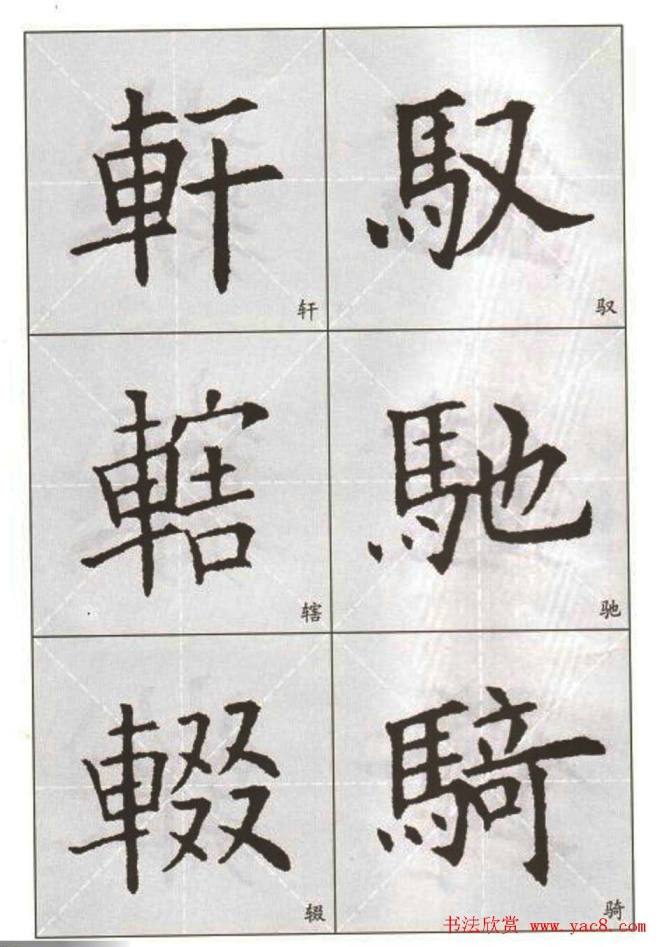 軒 馭
轩 驭
轄 馳
辖 驰
輟 騎
辍 骑
书法欣赏 www.yac8.com